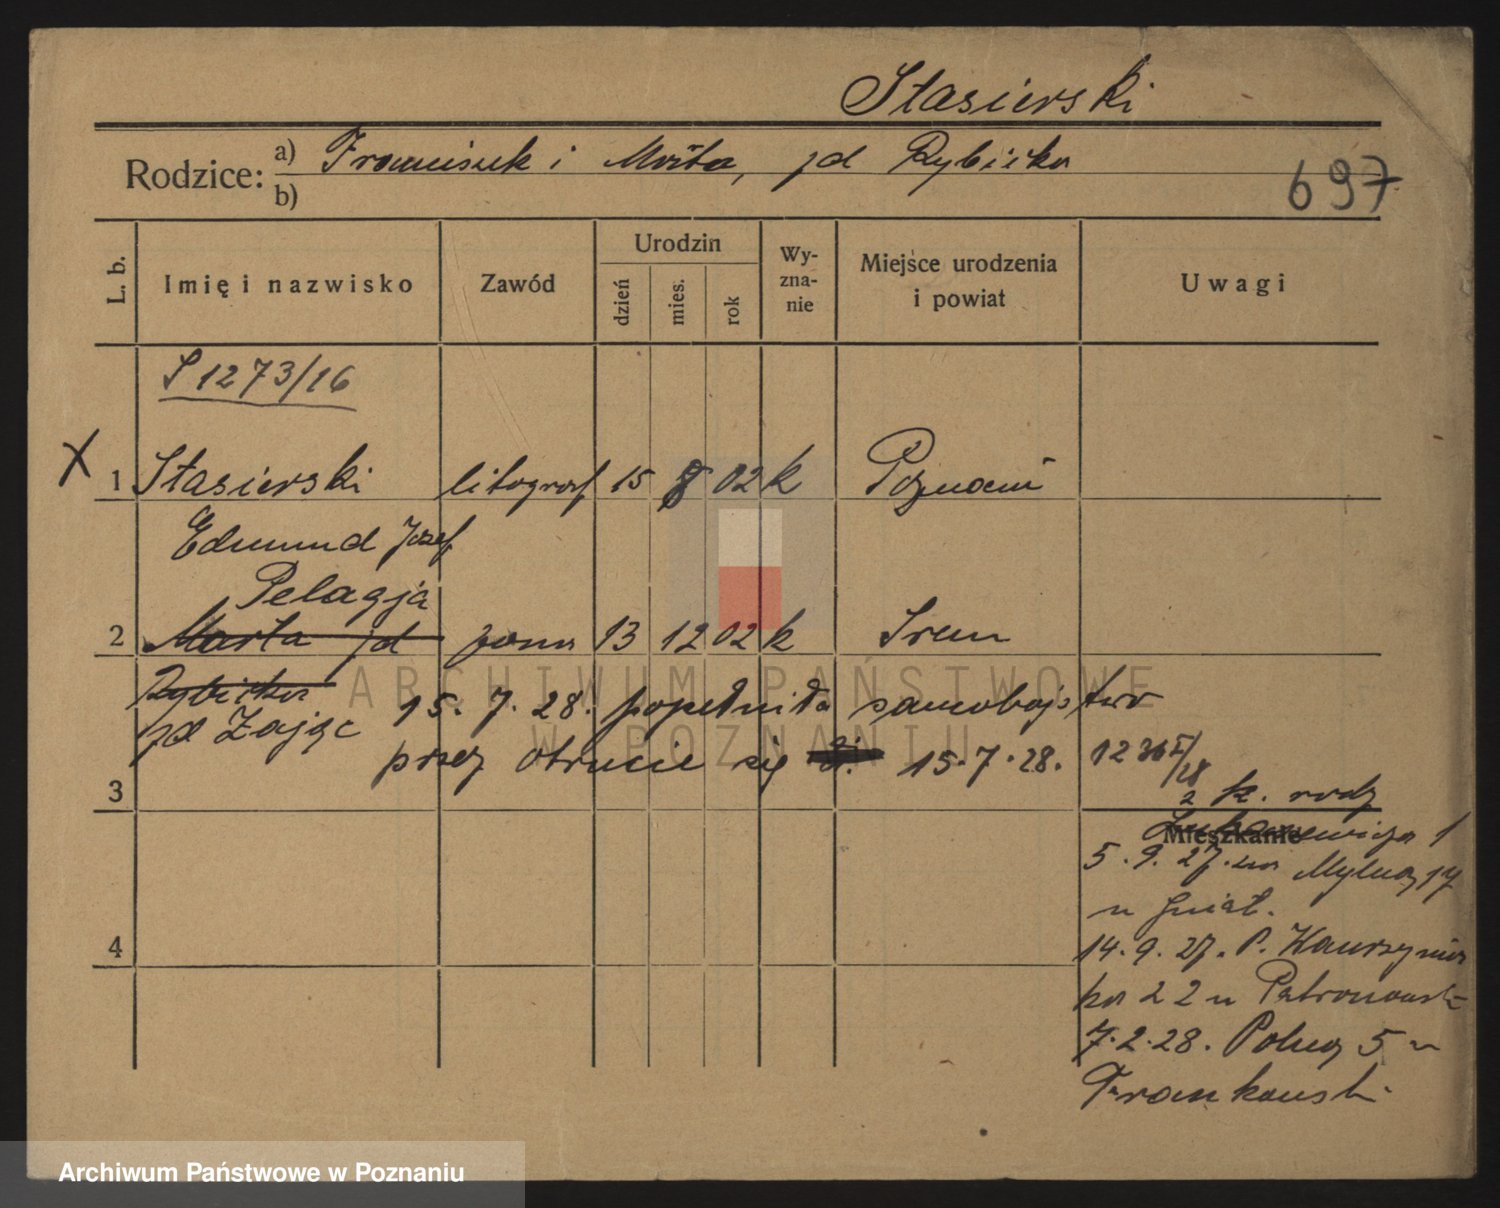 Stasierski
Rodzice: a) Franciszek i Marta, zd Rybicka
b)
697
L. b.
Imię i nazwisko
Zawód
Urodzin
dzień
mies.
rok
Wy-
zna-
nie
Miejsce urodzenia
i powiat
Uwagi
S 1273/16
X 1 Stasierski litograf 15 8 02 k Poznań
Edmund Józef
Pelagja
2 Marta zd żona 13 12 02 k Śrem
Rybicka
zd Zając
15. 7. 28. popełniła samobójstwo
przez otrucie się 15.7.28.
3
z k. rodz
Mieszkanie
5.9.27. na Mylną 17
4
14.9.27. P.
ka 22 u
7.2.28. Polną 5 u
Frankowski
ARCHIWUM PAŃSTWOWE
W POZNANIU
Archiwum Państwowe w Poznaniu